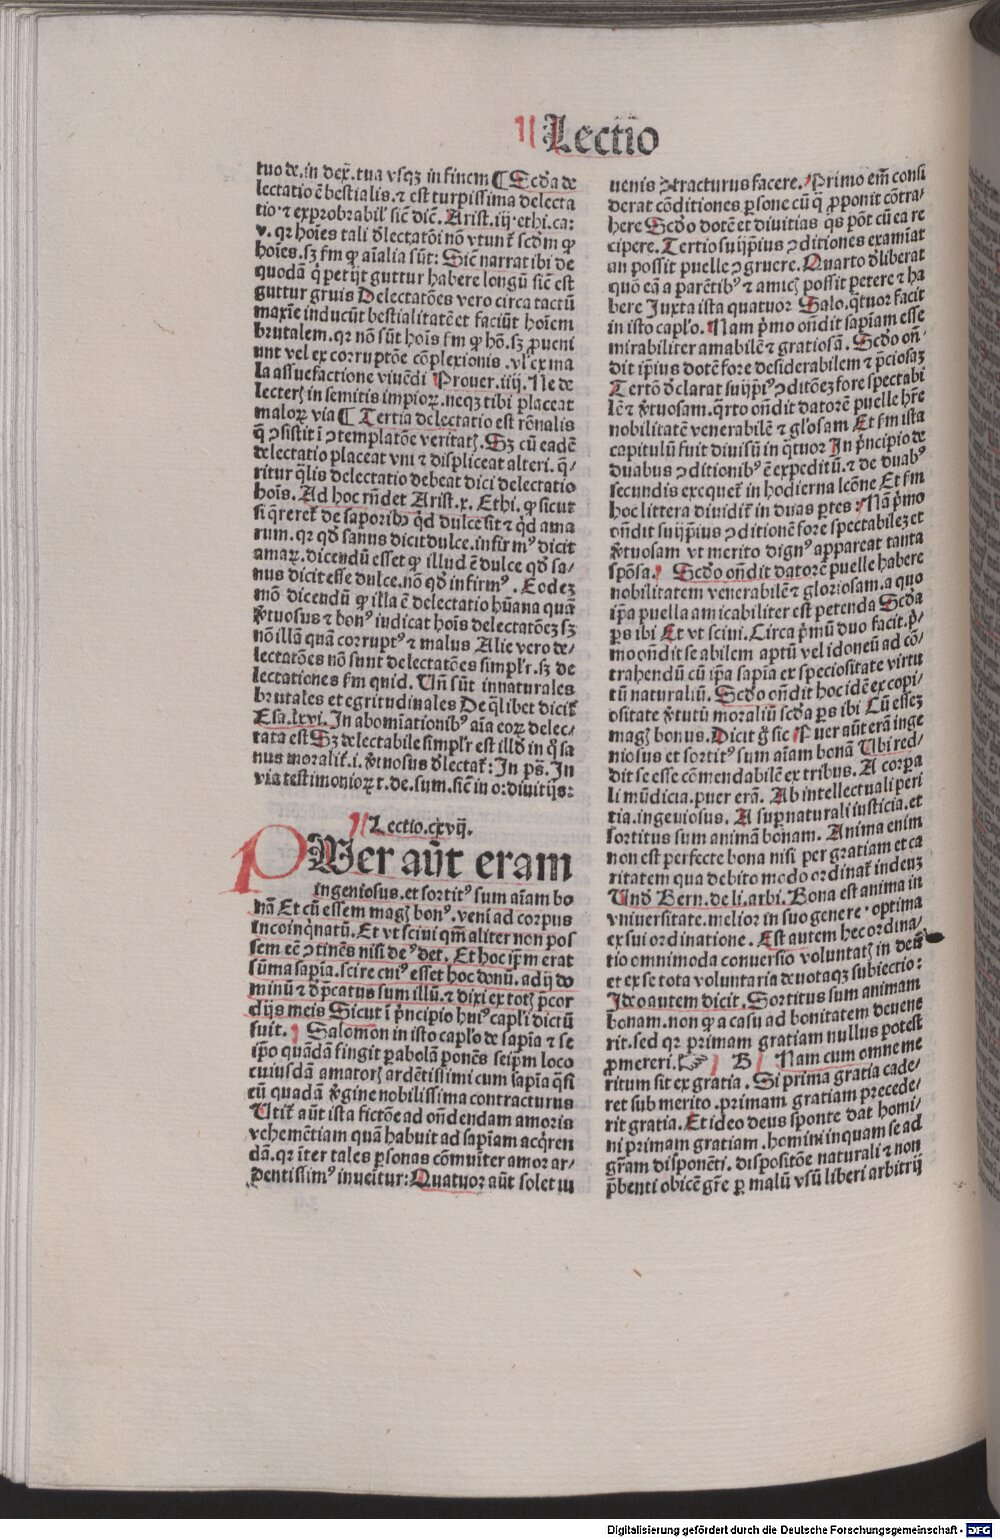 Lectio
tuo de. in dex̄. tua vsqꝫ in finem ¶ Scd̄a de
lectatio ē bestialis. ⁊ est turpissima delecta
tio ⁊ exprobrabil' sic̄ dic̄. Arist. iij. ethi. ca:
v. qr hoīes tali dl̄ectatōi nō vtunt᷑ scd̄m ꝙ
hoīes. sꝫ fm ꝙ aīalia sūt: Sic̄ narrat ibi de
quodā q̇ petijt guttur habere longū sic̄ est
guttur gruis Delectatōes vero circa tactū
maxīe inducūt bestialitatē et faciūt hoīem
brutalem. qr nō sūt hoīs fm ꝙ hō. sꝫ ꝓueni
unt vel ex corruptōe cōplexionis. vl' ex ma
la assuefactione viuēdi Prouer. iiij. Ne de
lecterꝭ in semitis impioꝝ. neqꝫ tibi placeat
maloꝝ via ¶ Tertia delectatio est rōnalis
q̄ ɔsistit ī ɔtemplatōe veritatꝭ. Sꝫ cū eadē
delectatio placeat vni ⁊ displiceat alteri. q̄/
ritur q̄lis delectatio debeat dici delectatio
hoīs. Ad hoc rn̄det Arist. x. Ethi. ꝙ sicut
si q̄reret᷑ de saporibꝰ qd̄ dulce sit ⁊ qd̄ ama
rum. qr qd̄ sanus dicit dulce. infirmꝰ dicit
amaꝝ. dicendū esset ꝙ illud ē dulce qd̄ sa/
nus dicit esse dulce. nō qd̄ infirmꝰ. Eodeꝫ
mō dicendū ꝙ illa ē delectatio hūana quā
v̓tuosus ⁊ bonꝰ iudicat hoīs delectatōeꝫ sꝫ
nō illā quā corruptꝰ ⁊ malus Alie vero de/
lectatōes nō sunt delectatōes simpl'r. sꝫ de
lectationes fm quid. Un̄ sūt innaturales
brutales et egritudinales De ql̄ibet dicit᷑
Esa. lxvi. In abomīationibꝰ aīa eoꝝ delec/
tata est Sꝫ delectabile simpl'r est illd̄ in q̇ sa
nus moralit᷑. i. v̓tuosus dl̄ectat᷑: In ps̄. In
via testimonioꝝ t. de. sum. sic̄ in o: diuitijs:
Lectio. cxvij.
PUer aūt eram
ingeniosus. et sortitꝰ sum aīam bo
nā Et cū essem magꝭ bonꝰ. veni ad corpus
incoinq̇natū. Et vt sciui qm̄ aliter non pos
sem eē ɔtinēs nisi deꝰ det. Et hoc ip̄m erat
sūma sapīa. scire cuiꝰ esset hoc donū. adij do
minū ⁊ dp̄catus sum illū. ⁊ dixi ex totꝭ p̄cor
dijs meis Sicut ī pn̄cipio huiꝰ capl'i dictū
fuit. Salomon in isto capl'o de sapīa ⁊ se
ip̄o quādā fingit ꝑabolā ponēs seip̄m loco
cuiusdā amatorꝭ ardētissimi cum sapīa q̄si
cū quadā v̓gine nobilissima contracturus
Utit᷑ aūt ista fictōe ad on̄dendam amoris
vehemētiam quā habuit ad sapīam acq̇ren
dā. qr īter tales ꝑsonas cōmuīter amor ar/
dentissimꝰ inueītur: Quatuor aūt solet iu
uenis ɔtracturus facere. Primo em̄ consi
derat cōditiones ꝑsone cū q̄ ꝓponit cōtra/
here Scd̄o dotē et diuitias q̄s pōt cū ea re
cipere. Tertio suijp̄ius ɔditiones examīat
an possit puelle ɔgruere. Quarto dl̄iberat
quō eā a parētibꝰ ⁊ amicꝭ possit petere ⁊ ha
bere Juxta ista quatuor Salo. q̇tuor facit
in isto capl'o. Nam pᷓmo on̄dit sapīam esse
mirabiliter amabilē ⁊ gratiosā. Scd̄o on̄/
dit ip̄ius dotē fore desiderabilem ⁊ p̄ciosaꝫ
Tertō dc̄larat suijp̄iꝰ ɔditōeꝫ fore spectabi
lē ⁊ v̓tuosam. q̇rto on̄dit datorē puelle hr̄e
nobilitatē venerabilē ⁊ gl'osam Et fm ista
capitulū fuit diuisū in q̇tuor In pn̄cipio de
duabus ɔditionibꝰ ē expeditū. ⁊ de duabꝰ
secundis exequet᷑ in hodierna lcōne Et fm
hoc littera diuidit᷑ in duas ꝑtes: Nā pᷓmo
on̄dit suijp̄ius ɔditionē fore spectabileꝫ et
v̓tuosam vt merito dignꝰ appareat tanta
spōsa. Scd̄o on̄dit datorē puelle habere
nobilitatem venerabilē ⁊ gloriosam. a quo
ip̄a puella amicabiliter est petenda Scd̄a
ꝑs ibi Et vt sciui. Circa pᷓmū duo facit. pᷓ/
mo on̄dit se abilem aptū vel idoneū ad cō/
trahendū cū ip̄a sapīa ex speciositate virtu
tū naturaliū. Scd̄o on̄dit hoc idē ex copi/
ositate v̓tutū moraliū scd̄a ꝑs ibi Cū esseꝫ
magꝭ bonus. Dicit g̊ sic Puer aūt erā inge
niosus et sortitꝰ sum aīam bonā Ubi red/
dit se esse cōmendabilē ex tribus. A corpa
li mūdicia. puer erā. Ab intellectuali peri
tia. ingeniosus. A suꝑnaturali iusticia. et
sortitus sum animā bonam. Anima enim
non est perfecte bona nisi per gratiam et ca
ritatem qua debito modo ordinat᷑ in deuꝫ
Und̄ Bern. de li. arbi. Bona est anima in
vniuersitate. melior in suo genere. optima
ex sui ordinatione. Est autem hec ordina/
tio omnimoda conuersio voluntatꝭ in deū
et ex se tota voluntaria deuotaqꝫ subiectio:
Ideo autem dicit. Sortitus sum animam
bonam. non ꝙ a casu ad bonitatem deuene
rit. sed qr primam gratiam nullus potest
ꝓmereri. ☞ B Nam cum omne me
ritum sit ex gratia. Si prima gratia cade/
ret sub merito. primam gratiam precede/
rit gratia. Et ideo deus sponte dat homi/
ni primam gratiam. homini inquam se ad
gr̄am disponēti. dispositōe naturali ⁊ non
p̄benti obicē gr̄e ꝑ malū vsū liberi arbitrij
Digitalisierung gefördert durch die Deutsche Forschungsgemeinschaft - DFG